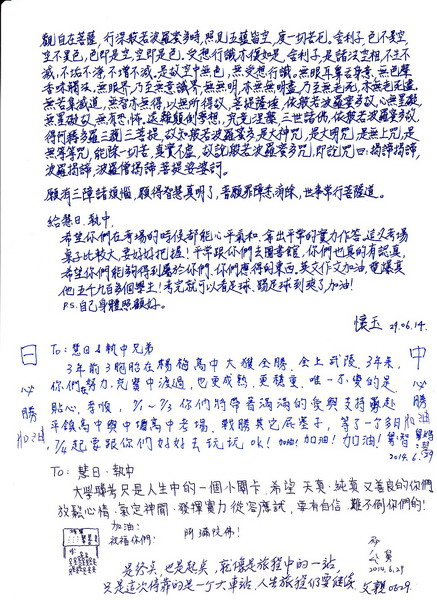 觀自在菩薩，行深般若波羅蜜多時，照見五蘊皆空，度一切苦厄。舍利子，色不異空，
空不異色，色即是空，空即是色，受想行識亦復如是。舍利子，是諸法空相，不生不
滅，不垢不淨，不增不減，是故空中無色，無受想行識。無眼耳鼻舌身意，無色聲
香味觸法，無眼界，乃至無意識界，無無明，亦無無明盡，乃至無老死，亦無老死盡，
無苦集滅道，無智亦無得，以無所得故，菩提薩埵，依般若波羅蜜多故，心無罣礙，
無罣礙故，無有恐怖，遠離顛倒夢想，究竟涅槃，三世諸佛，依般若波羅蜜多故，
得阿耨多羅三藐三菩提，故知般若波羅蜜多，是大神咒，是大明咒，是無上咒，是
無等等咒，能除一切苦，真實不虛，故說般若波羅蜜多咒，即說咒曰：揭諦揭諦，
波羅揭諦，波羅僧揭諦，菩提娑婆訶。
願消三障諸煩惱，願得智慧真明了，普願罪障悉消除，世世常行菩薩道。
給慧日、執中，
希望你們在考場的時侯都能心平氣和，拿出平常的實力作答，這次考場
桌子比較大，要好好把握！平常跟你們去圖書館，你們也真的有認真，
希望你們能夠得到屬於你們、你們應得的東西，英文作文加油，電爆其
他五千九百多個學生！考完就可以看足球、踢足球到爽了，加油！
P.S.自己身體照顧好。
懷玉 29.06.14.
日
必
勝
加油
中
必
勝
加油
To: 慧日&執中兄弟
3年前3胞胎在楊梅高中大獲全勝，全上武陵，3年來，
你們在努力、充實中渡過，也更成熟、更穩重，唯一不變的是
貼心、孝順，7/1~7/3 你們將帶著滿滿的愛與支持勇赴
平鎮高中與中壢高中考場，戰勝其它屁孩子，等了一個多月
7/4 起要跟你們好好去玩玩 OK! 加油! 加油! 加油!
2014.6.29
To: 慧日、執中
大學聯考只是人生中的一個小關卡，希望天真、純真又善良的你們
放鬆心情、氣定神閒、發揮實力從容應試，要有自信，難不倒你們的!
加油!
祝福你們! 阿彌陀佛!
2014.6.29
是終點，也是起點，就像是旅程中的一站，
只是這次停靠的是一個大車站，人生旅程仍要繼續
父親 0629.